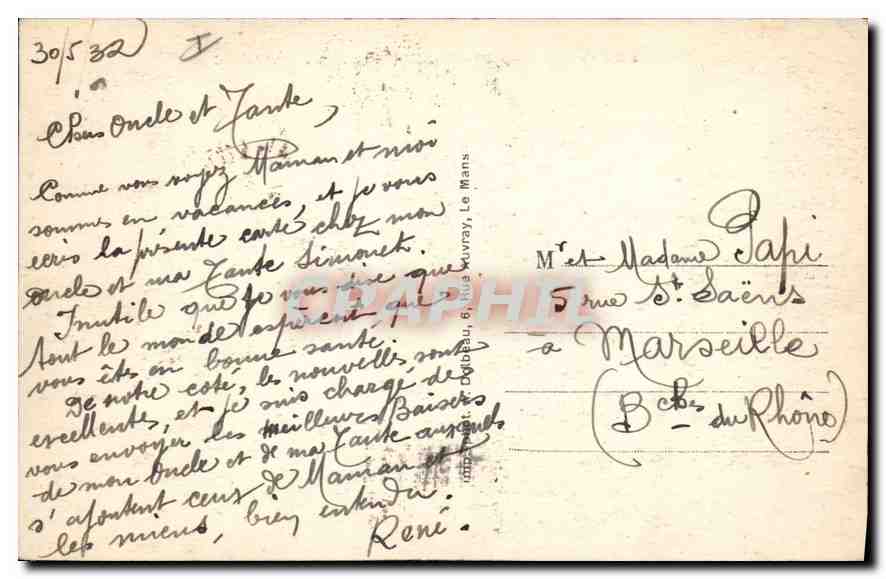 30/5/32 I
Chers Oncle et Tante,
Comme vous voyez Maman et moi
sommes en vacances, et je vous
écris la présente carte chez mon
oncle et ma Tante Simonet.
Inutile que je vous dise que
tout le monde espèrent que
vous êtes en bonne santé.
De notre coté, les nouvelles sont
excellentes, et je suis chargé de
vous envoyer les meilleures Baisers
de mon Oncle et de ma Tante auxquels
s'ajoutent ceux de Maman et
les miens, bien entendu.
René.
6, Rue Auvray, Le Mans
Mr et Madame Papi
5 rue St. Saëns
a Marseille
(Bches du Rhône)
CPAPHIL